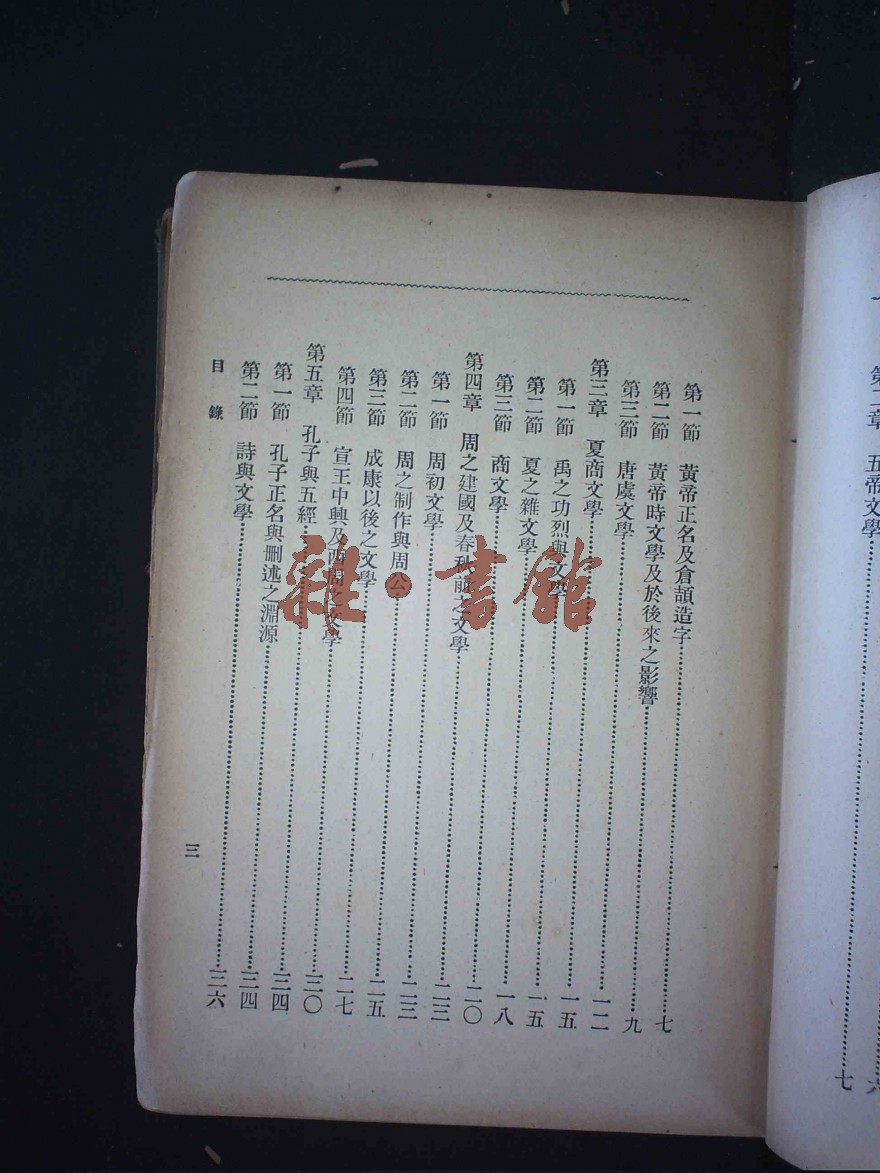 第二章 五帝文學 七
第一節 黃帝正名及倉頡造字 七
第二節 黃帝時文學及於後來之影響 九
第三節 唐虞文學 一二
第三章 夏商文學 一五
第一節 禹之功烈與文學 一五
第二節 夏之雜文學 一八
第三節 商文學 二〇
第四章 周之建國及春秋前之文學 二三
第一節 周初文學 二三
第二節 周之制作與周公 二五
第三節 成康以後之文學 二七
第四節 宣王中興及西周之文學 三〇
第五章 孔子與五經 三四
第一節 孔子正名與删述之淵源 三四
第二節 詩與文學 三六
目錄 三
雜·書館